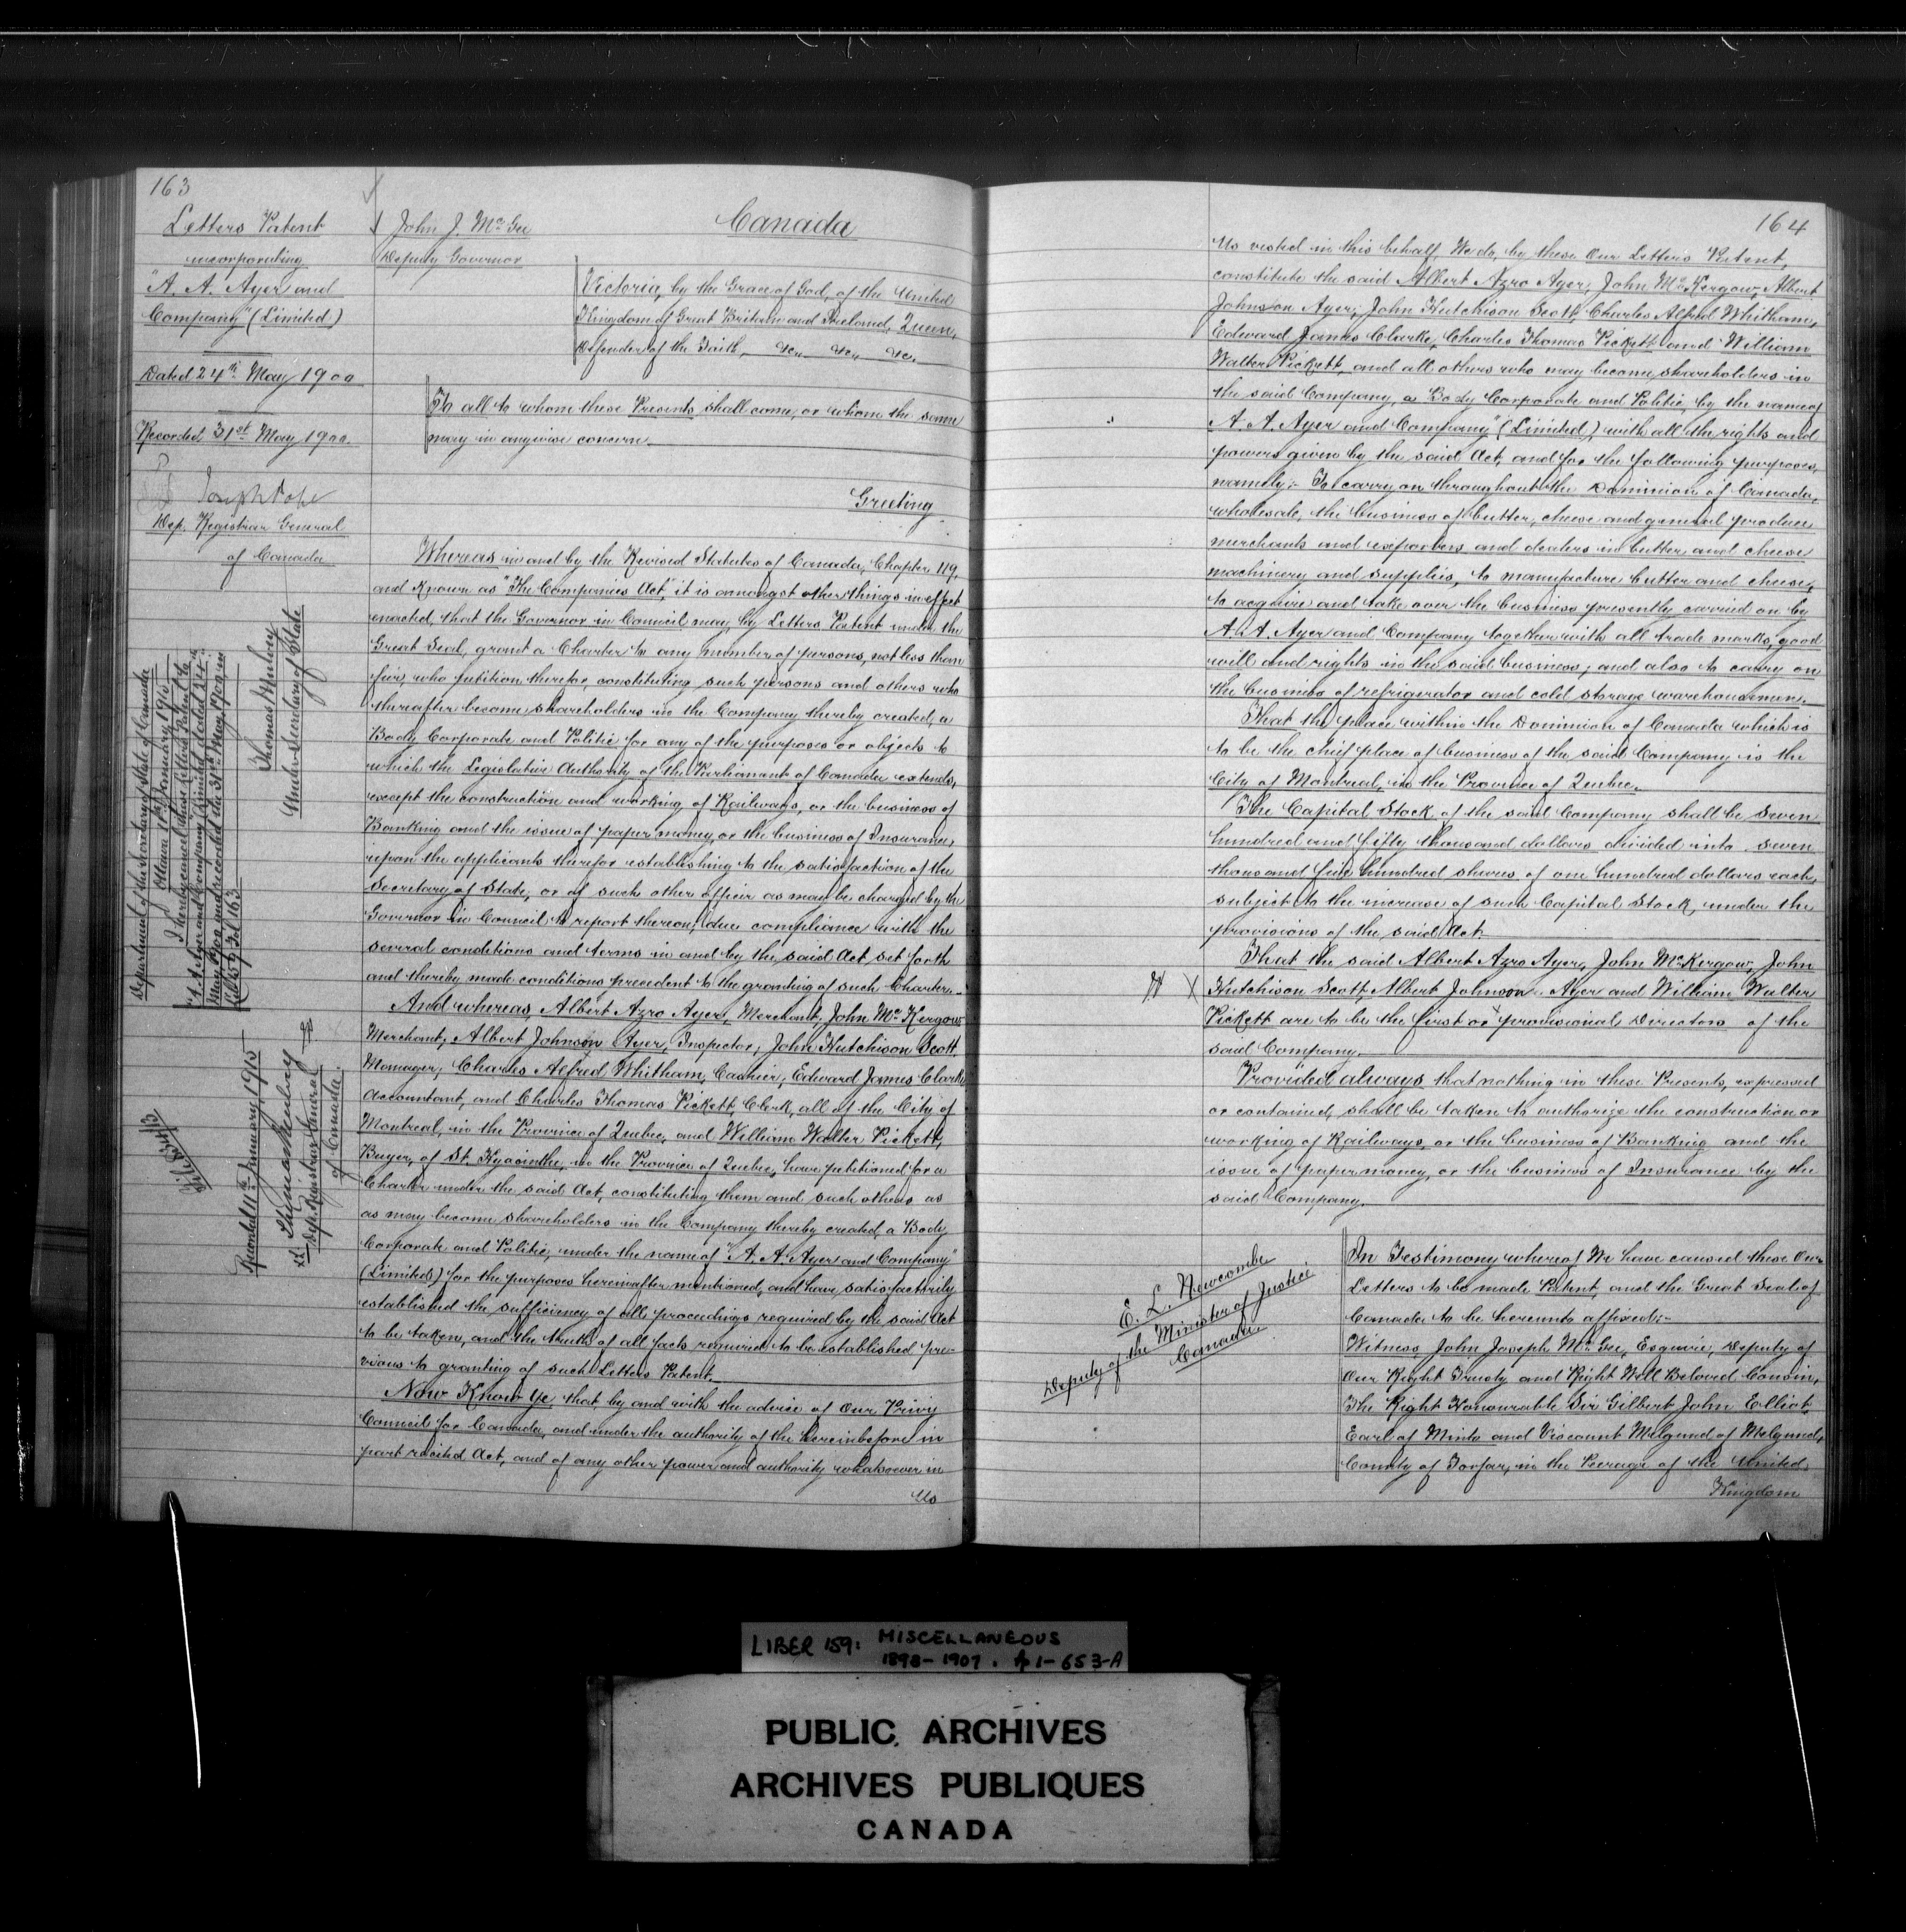 163
Letters Patent
incorporating
"A. A. Ayer and
Company" (Limited)
Dated 24th May 1900
Recorded 31st May 1900.
Joseph Pope
Dep. Registrar General
of Canada
Department of the Secretary of State of Canada
Ottawa 11th January 1915
I hereby cancel these Letters Patent to
"A. A. Ayer and Company" (Limited) dated 24th
May 1900 and recorded the 31st May 1900 in
Lib 159 Fol 163
Thomas Mulvey
Under-Secretary of State
Recorded 11th January 1915
Thomas Mulvey
Dep. Registrar General
of Canada.
John J. McGee
Deputy Governor
Canada
Victoria, by the Grace of God, of the United
Kingdom of Great Britain and Ireland, Queen,
Defender of the Faith, &c. &c. &c.
To all to whom these Presents shall come, or whom the same
may in anywise concern.
Greeting
Whereas in and by the Revised Statutes of Canada, Chapter 119,
and known as "The Companies Act," it is amongst other things in effect
enacted, that the Governor in Council may, by Letters Patent under the
Great Seal, grant a Charter to any number of persons, not less than
five, who petition therefor, constituting such persons and others who
thereafter become shareholders in the Company thereby created, a
Body Corporate and Politic for any of the purposes or objects to
which the Legislative Authority of the Parliament of Canada extends,
except the construction and working of Railways, or the business of
Banking and the issue of paper money, or the business of Insurance,
upon the applicants therefor establishing to the satisfaction of the
Secretary of State, or of such other officer as may be charged by the
Governor in Council to report thereon, due compliance with the
several conditions and terms in and by the said Act set forth
and thereby made conditions precedent to the granting of such Charter.
And whereas, Albert Azro Ayer, Merchant; John McKergow
Merchant; Albert Johnson Ayer, Inspector; John Hutchison Scott,
Manager; Charles Alfred Whitham, Cashier; Edward James Clarke
Accountant, and Charles Thomas Pickett, Clerk, all of the City of
Montreal, in the Province of Quebec, and William Walter Pickett,
Buyer, of St. Hyacinthe, in the Province of Quebec, have petitioned for a
Charter under the said Act, constituting them and such others as
as may become shareholders in the Company thereby created, a Body
Corporate and Politic, under the name of "A. A. Ayer and Company"
(Limited) for the purposes hereinafter mentioned, and have satisfactorily
established the sufficiency of all proceedings required by the said Act
to be taken, and the truth of all facts required to be established pre-
vious to granting of such Letters Patent.
Now Know Ye, that by and with the advice of Our Privy
Council for Canada, and under the authority of the hereinbefore in
part recited Act, and of any other power and authority whatsoever in
Us
164
Us vested in this behalf, We do, by these Our Letters Patent,
constitute the said Albert Azro Ayer, John McKergow, Albert
Johnson Ayer, John Hutchison Scott, Charles Alfred Whitham,
Edward James Clarke, Charles Thomas Pickett and William
Walter Pickett, and all others who may become shareholders in
the said Company, a Body Corporate and Politic, by the name of
A. A. Ayer and Company" (Limited), with all the rights and
powers given by the said Act, and for the following purposes,
namely:- To carry on throughout the Dominion of Canada,
wholesale, the business of butter, cheese and general produce
merchants and exporters and dealers in butter and cheese
machinery and supplies, to manufacture butter and cheese,
to acquire and take over the business presently carried on by
A. A. Ayer and Company together with all trade marks, good
will and rights in the said business; and also to carry on
the business of refrigerator and cold storage warehousemen.
That the place within the Dominion of Canada which is
to be the chief place of business of the said Company is the
City of Montreal, in the Province of Quebec.
The Capital Stock of the said Company shall be Seven
hundred and fifty thousand dollars divided into seven
thousand five hundred shares of one hundred dollars each,
subject to the increase of such Capital Stock, under the
provisions of the said Act.
That the said Albert Azro Ayer, John McKergow, John
X Hutchison Scott, Albert Johnson Ayer and William Walter
Pickett are to be the first or provisional Directors of the
said Company.
Provided always that nothing in these Presents, expressed
or contained, shall be taken to authorize the construction or
working of Railways, or the business of Banking and the
issue of paper money, or the business of Insurance by the
said Company.
E. L. Newcombe
Deputy of the Minister of Justice
Canada
In Testimony whereof We have caused these Our
Letters to be made Patent, and the Great Seal of
Canada to be hereunto affixed:-
Witness, John Joseph McGee, Esquire, Deputy of
Our Right Trusty and Right Well Beloved Cousin,
The Right Honourable Sir Gilbert John Elliot,
Earl of Minto and Viscount Melgund of Melgund,
County of Forfar, in the Peerage of the United
Kingdom
LIBER 159: MISCELLANEOUS
1898-1907. p 1-653-A
PUBLIC ARCHIVES
ARCHIVES PUBLIQUES
CANADA